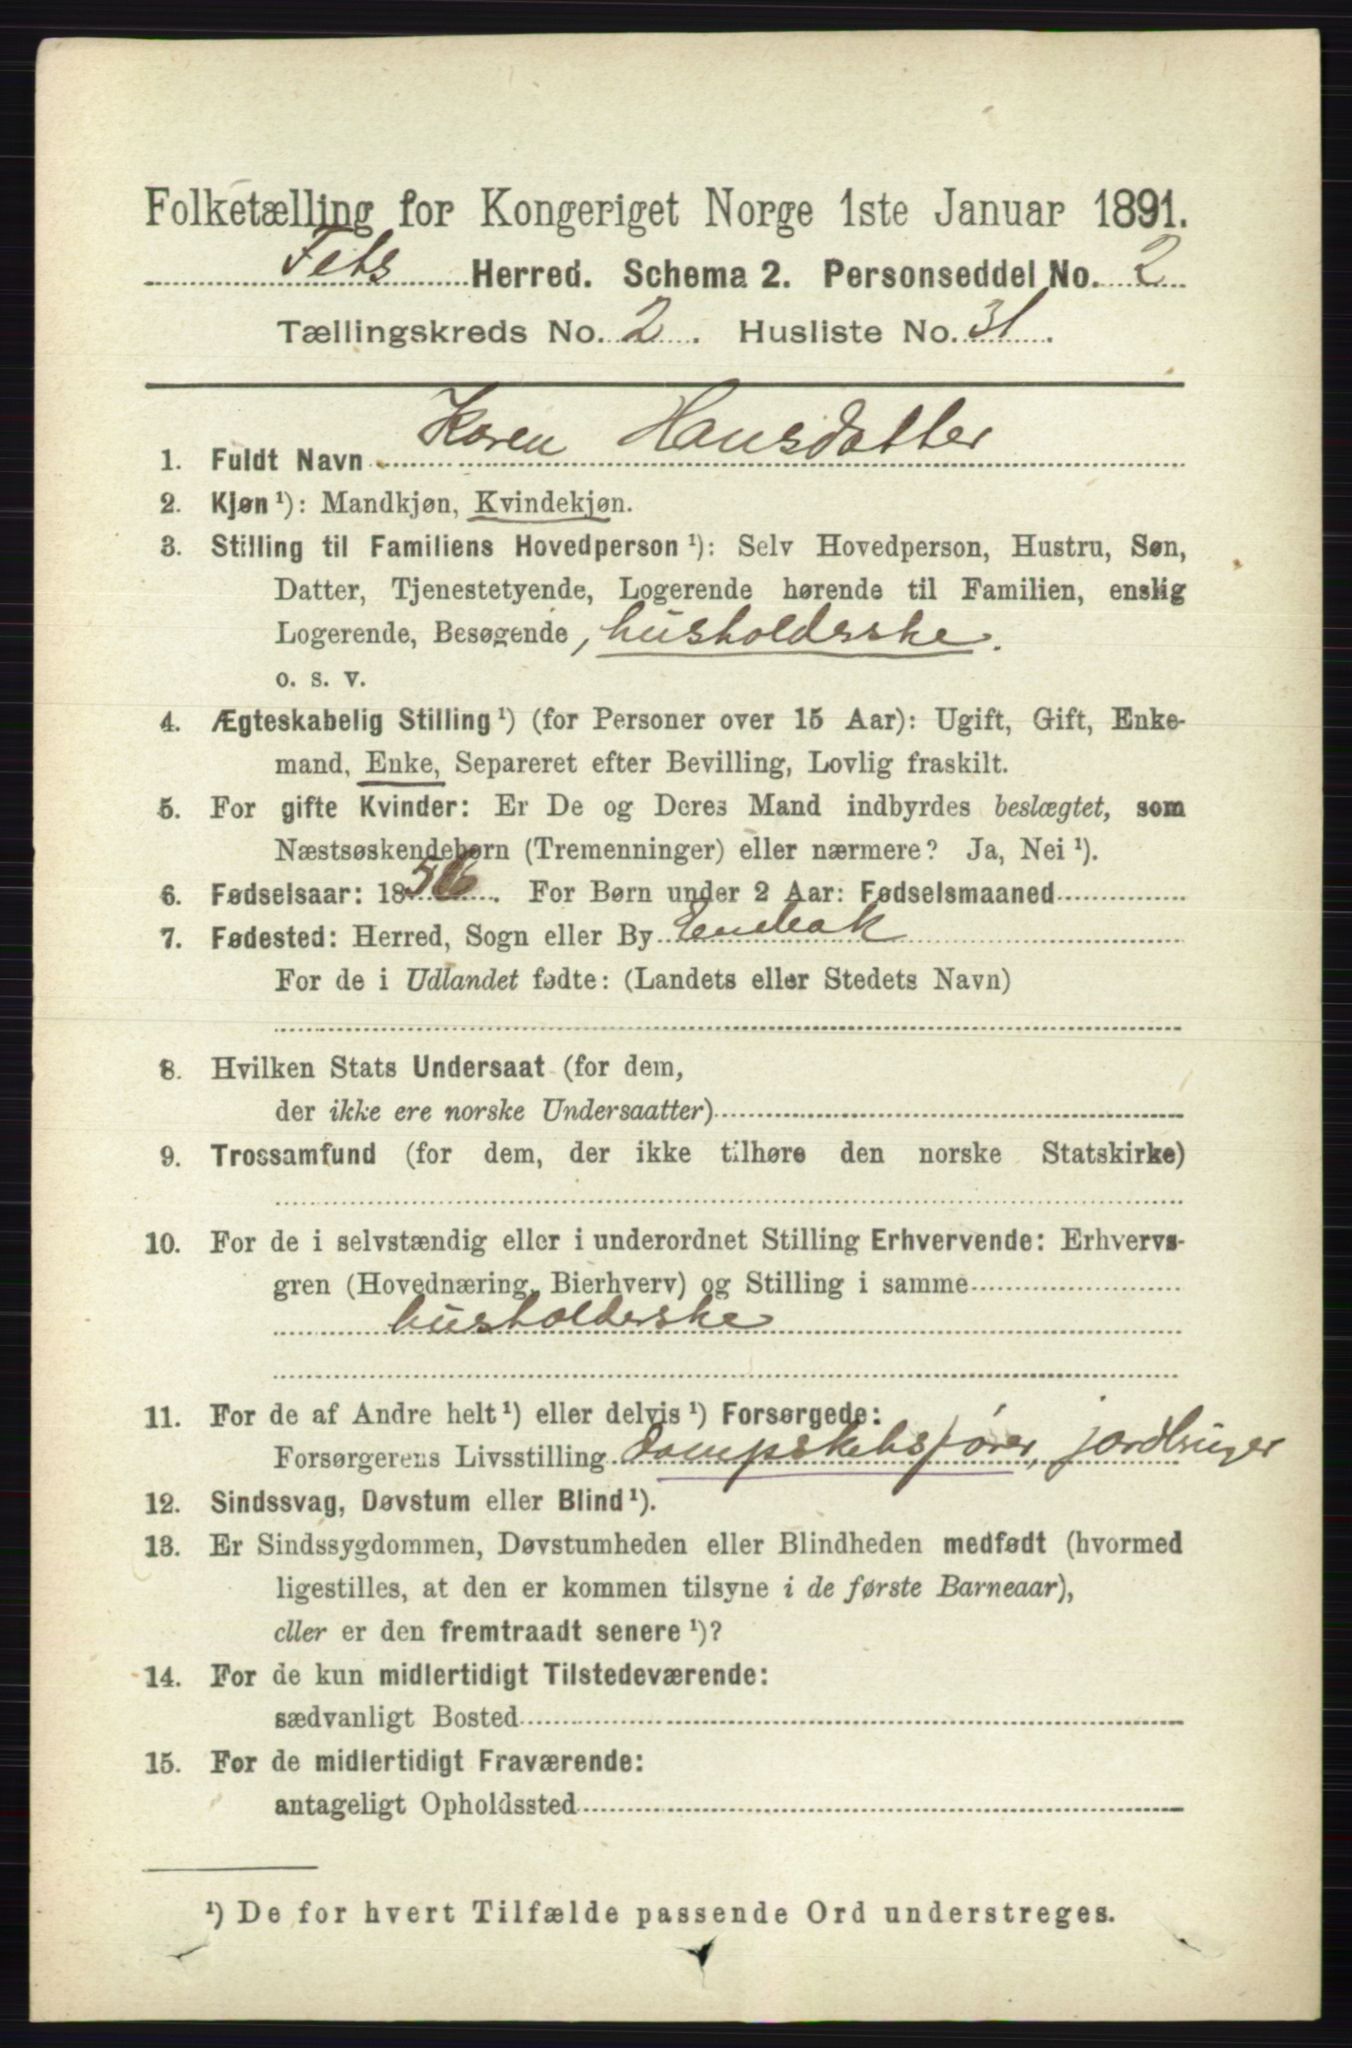 Folketælling for Kongeriget Norge 1ste Januar 1891.
Fets Herred. Schema 2. Personseddel No. 2
Tællingskreds No. 2. Husliste No. 31.
1. Fuldt Navn Karen Hansdatter
2. Kjøn ¹): Mandkjøn, Kvindekjøn.
3. Stilling til Familiens Hovedperson ¹): Selv Hovedperson, Hustru, Søn,
Datter, Tjenestetyende, Logerende hørende til Familien, enslig
Logerende, Besøgende, husholderske.
o. s. v.
4. Ægteskabelig Stilling ¹) (for Personer over 15 Aar): Ugift, Gift, Enke-
mand, Enke, Separeret efter Bevilling, Lovlig fraskilt.
5. For gifte Kvinder: Er De og Deres Mand indbyrdes beslægtet, som
Næstsøskendebørn (Tremenninger) eller nærmere? Ja, Nei ¹).
6. Fødselsaar: 1856. For Børn under 2 Aar: Fødselsmaaned
7. Fødested: Herred, Sogn eller By Enebak
For de i Udlandet fødte: (Landets eller Stedets Navn)
8. Hvilken Stats Undersaat (for dem,
der ikke ere norske Undersaatter)
9. Trossamfund (for dem, der ikke tilhøre den norske Statskirke)
10. For de i selvstændig eller i underordnet Stilling Erhvervende: Erhvervs-
gren (Hovednæring, Bierhverv) og Stilling i samme
husholderske
11. For de af Andre helt ¹) eller delvis ¹) Forsørgede:
Forsørgerens Livsstilling dampskibsfører, jordbruger
12. Sindssvag, Døvstum eller Blind ¹).
13. Er Sindssygdommen, Døvstumheden eller Blindheden medfødt (hvormed
ligestilles, at den er kommen tilsyne i de første Barneaar),
eller er den fremtraadt senere ¹)?
14. For de kun midlertidigt Tilstedeværende:
sædvanligt Bosted
15. For de midlertidigt Fraværende:
antageligt Opholdssted
¹) De for hvert Tilfælde passende Ord understreges.